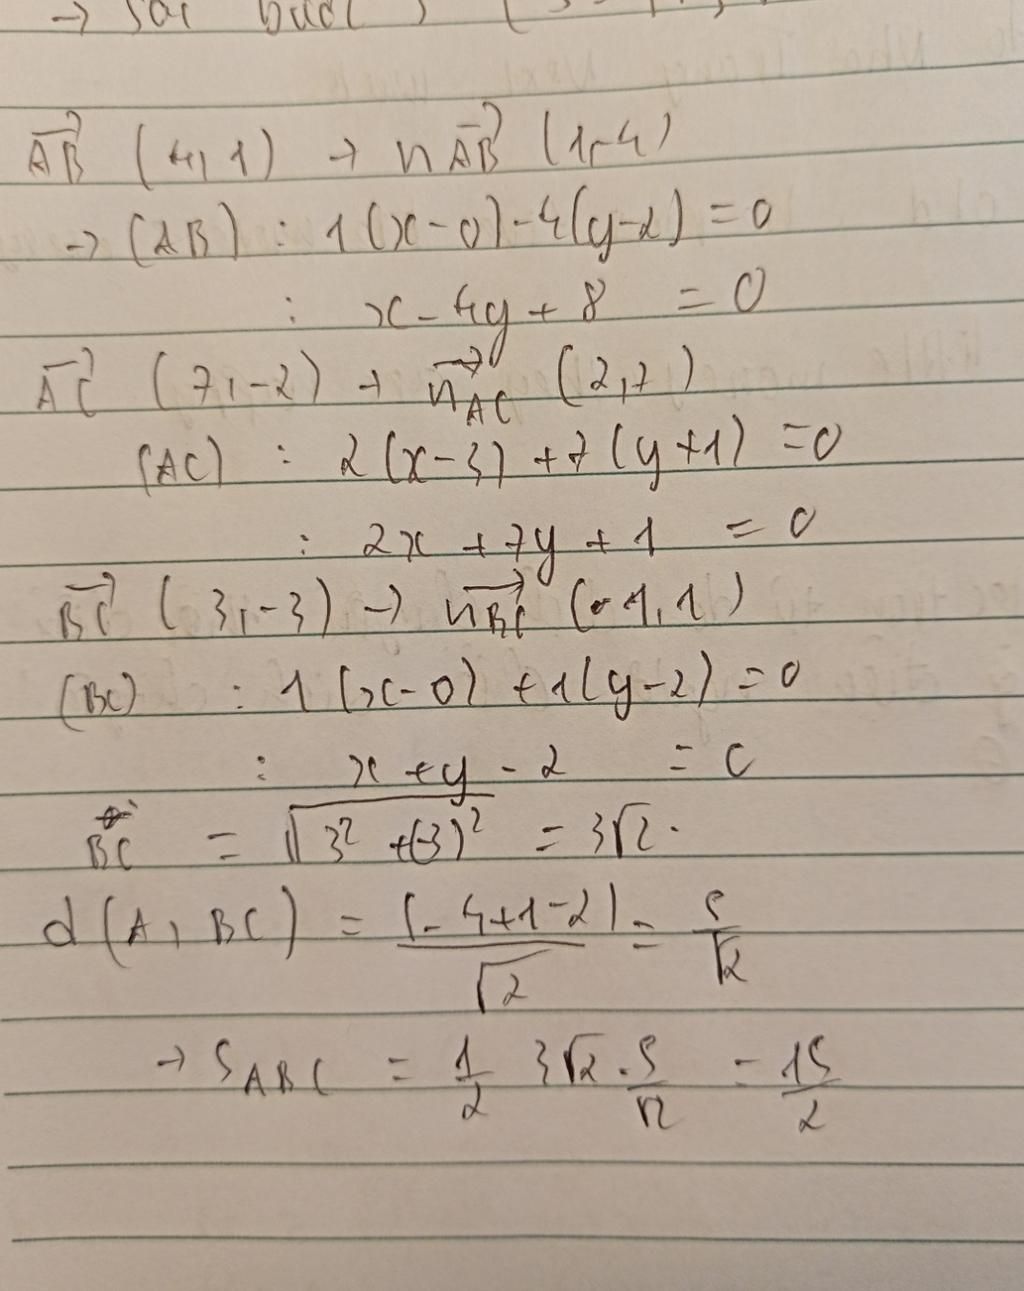 \overrightarrow{AB} (4, 1) → n\overrightarrow{AB} (1, -4)
→ (AB) : 1(x-0) - 4(y-2) = 0
: x - 4y + 8 = 0
\overrightarrow{AC} (7, -2) → \overrightarrow{n}_{AC} (2, 7)
(AC) : 2(x-3) + 7(y+1) = 0
: 2x + 7y + 1 = 0
\overrightarrow{BC} (3, -3) → \overrightarrow{n_{BC}} (1, 1)
(BC) : 1(x-0) + 1(y-2) = 0
: x + y - 2 = 0
BC = \sqrt{3^2 + (-3)^2} = 3\sqrt{2}.
d(A, BC) = \frac{|-4+1-2|}{\sqrt{2}} = \frac{5}{\sqrt{2}}
→ S_{ABC} = \frac{1}{2} 3\sqrt{2} . \frac{5}{\sqrt{2}} = \frac{15}{2}